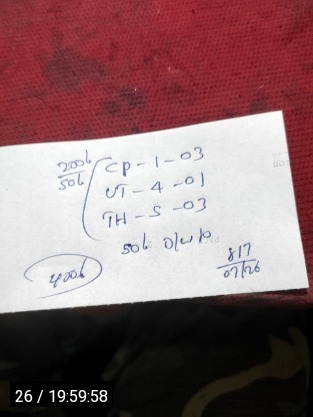 2006
506
CP - 1 - 03
UT - 4 - 01
TH - 5 - 03
506
4006
817
07/26
26 / 19:59:58